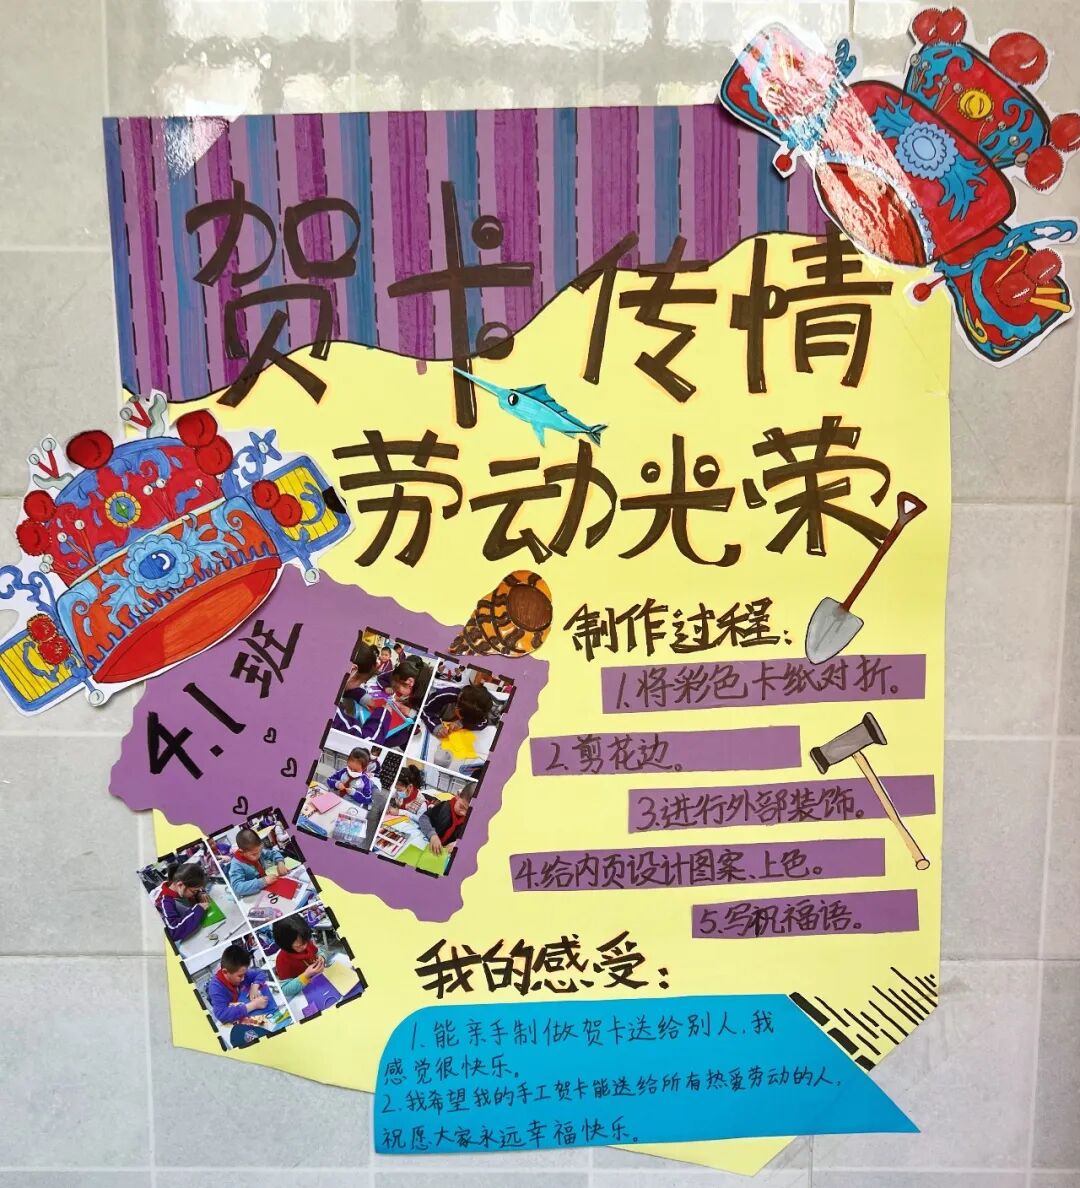 贺卡传情
劳动光荣
4.1班
制作过程：
1.将彩色卡纸对折。
2.剪花边。
3.进行外部装饰。
4.给内页设计图案、上色。
5.写祝福语。
我的感受：
1.能亲手制做贺卡送给别人，我
感觉很快乐。
2.我希望我的手工贺卡能送给所有热爱劳动的人，
祝愿大家永远幸福快乐。